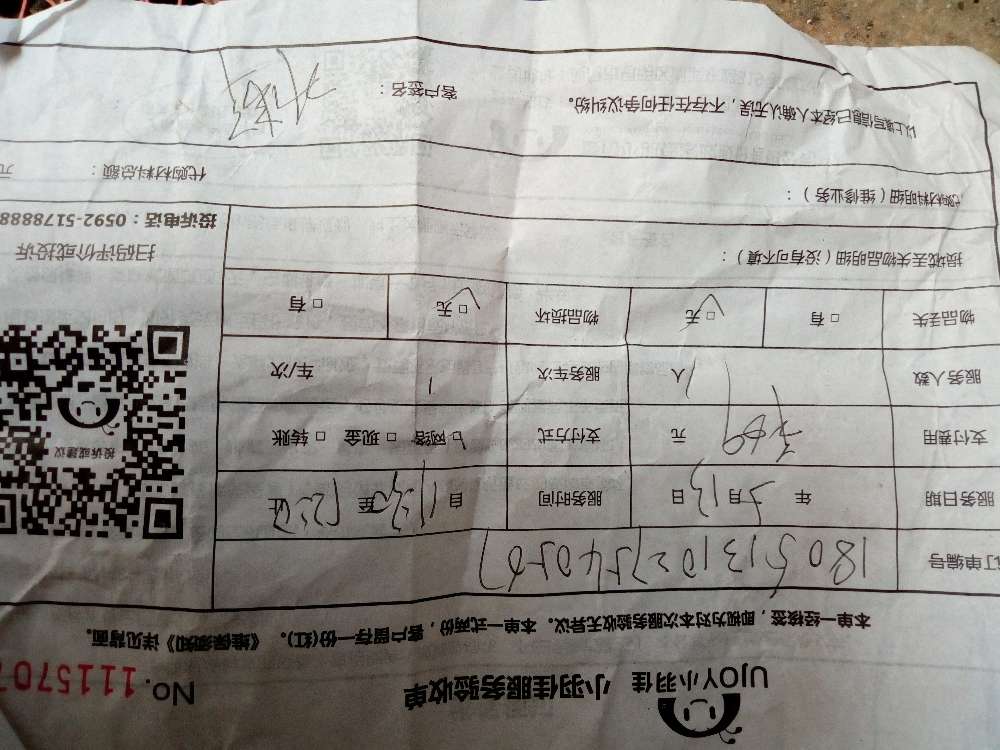 UJOY小羽佳 小羽佳服务验收单 No. 111570
本单一经核签，即视为对本次服务验收无异议。本单一式两份，客户留存一份(红)。《维保须知》详见背面。
订单编号
服务日期 年 5月13日 服务时间 自 至
支付费用 元 支付方式 □ 网络 □ 现金 □ 转账
服务人数 1 人 服务车次 1 车/次
物品丢失 □ 有 □ 无 物品损坏 □ 无 □ 有
投诉或建议
扫码评价或投诉
投诉电话：0592-5178888
损坏丢失物品明细（没有可不填）：
代购材料明细（维修业务）：
代购材料总额： 元
以上填写信息已经本人确认无误，不存在任何争议纠纷。
客户签名：